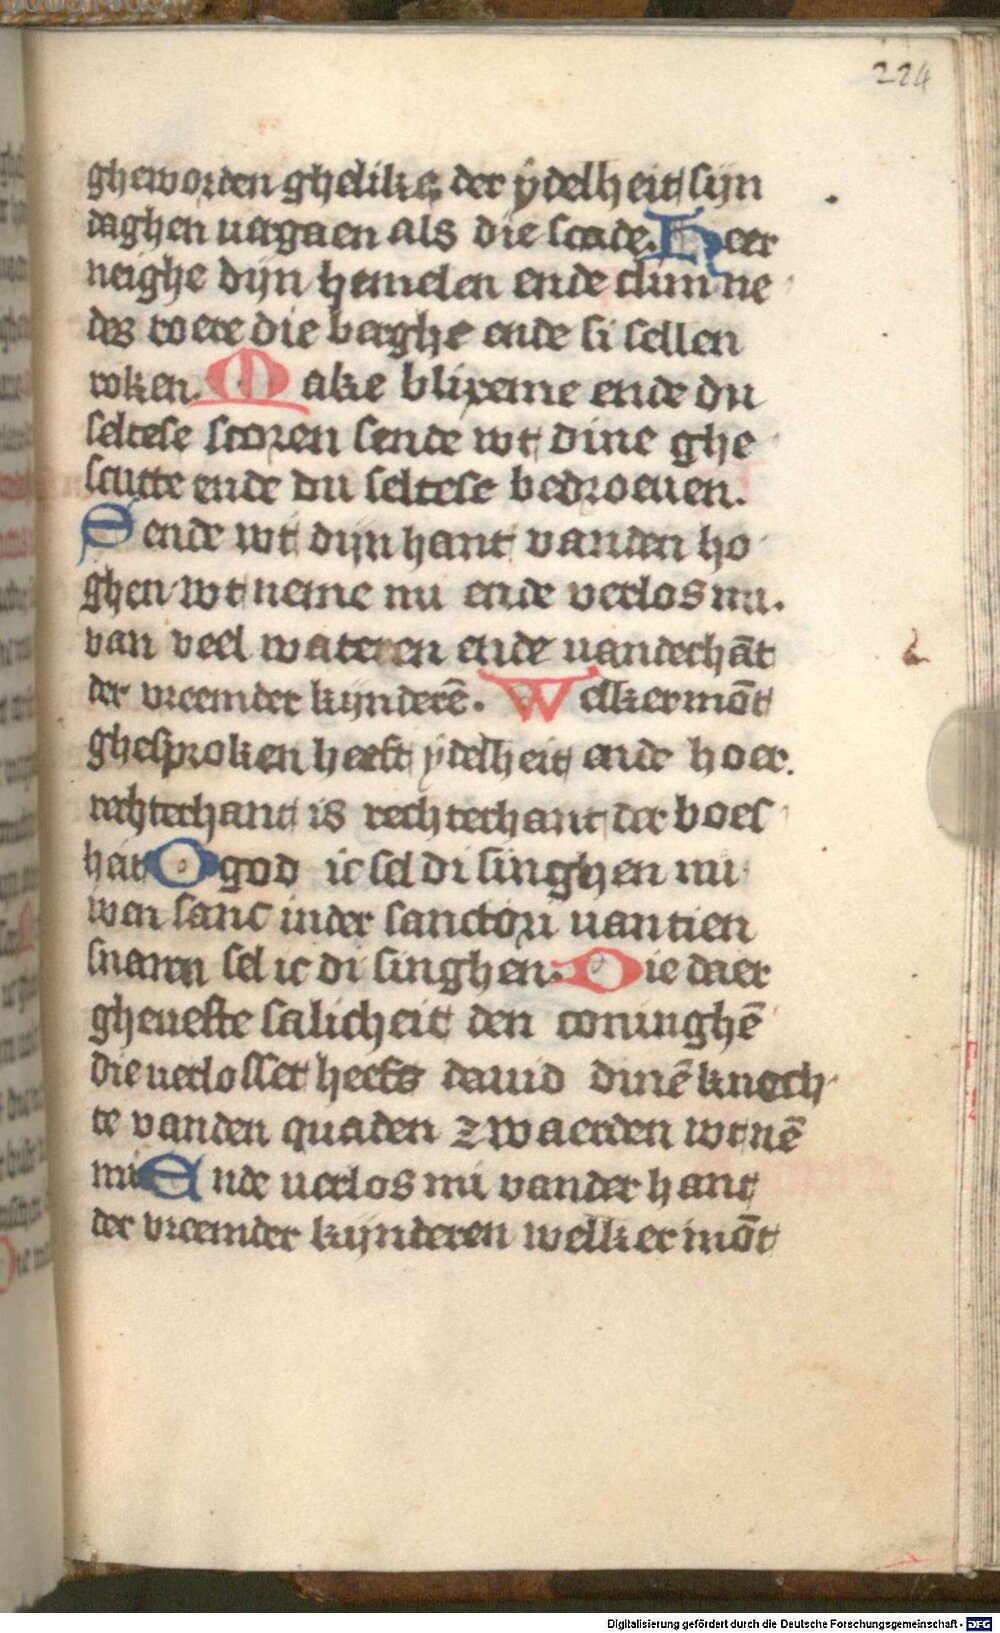 224
gheworden ghelike der ydelheit sijn
daghen uagaen als die scade. Heer
neighe dijn hemelen ende climme
des roere die berghe ende si sellen
roken. Make blixeme ende du
seltese storen sende wt dine ghe
scutte ende du seltese bedroeuen.
Sende wt dijn hant vanden ho
ghen wt neme mi ende verlos mi.
van veel wateren ende uanderhāt
der vreemder kijnderē. Welker mōt
ghesproken heeft ydelheit ende hoer.
rechterhant is rechterhant der boes
heit O god ic sel di singhen ni
wen sanc inder sanctori uantien
snaren sel ic di singhen. Die daer
gheueste salicheit den coninghē
die uerlosset heeft dauid dinē knech
te vanden quaden zwaerden wt nē
mi Ende uerlos mi vander hant
der vreemder kijnderen welker mōt
Digitalisierung gefördert durch die Deutsche Forschungsgemeinschaft - DFG